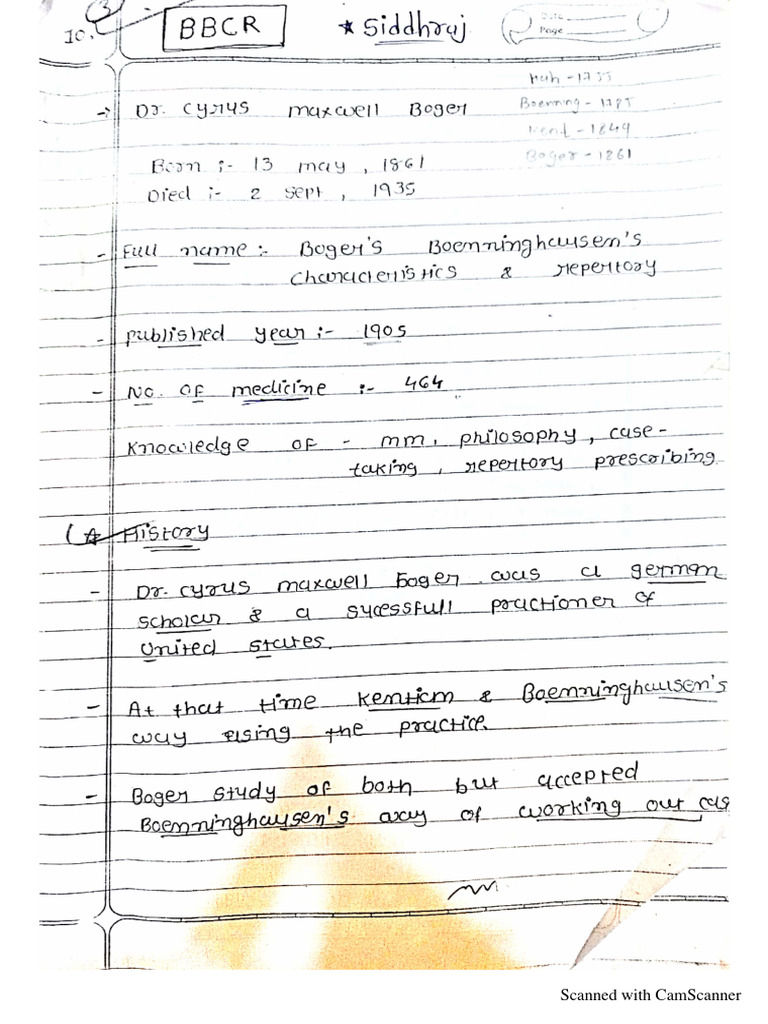 3
10. BBCR * Siddhraj Date
Page
Hah - 1755
→ Dr. Cyrus maxwell Boger Boenning - 1785
Kent - 1849
Born :- 13 may , 1861 Boger - 1861
Died :- 2 sept , 1935
- Full name :- Boger's Boenninghausen's
characteristics & repertory
- published year :- 1905
- No. of medicine :- 464
Knowledge of - mm, philosophy, case-
taking, repertory prescribing
History
- Dr. cyrus maxwell Boger was a german
scholar & a sucessfull practioner of
United states.
- At that time Kentian & Boenninghausen's
way rising the practice.
- Boger study of both but accepted
Boenninghausen's way of working out cas
Scanned with CamScanner